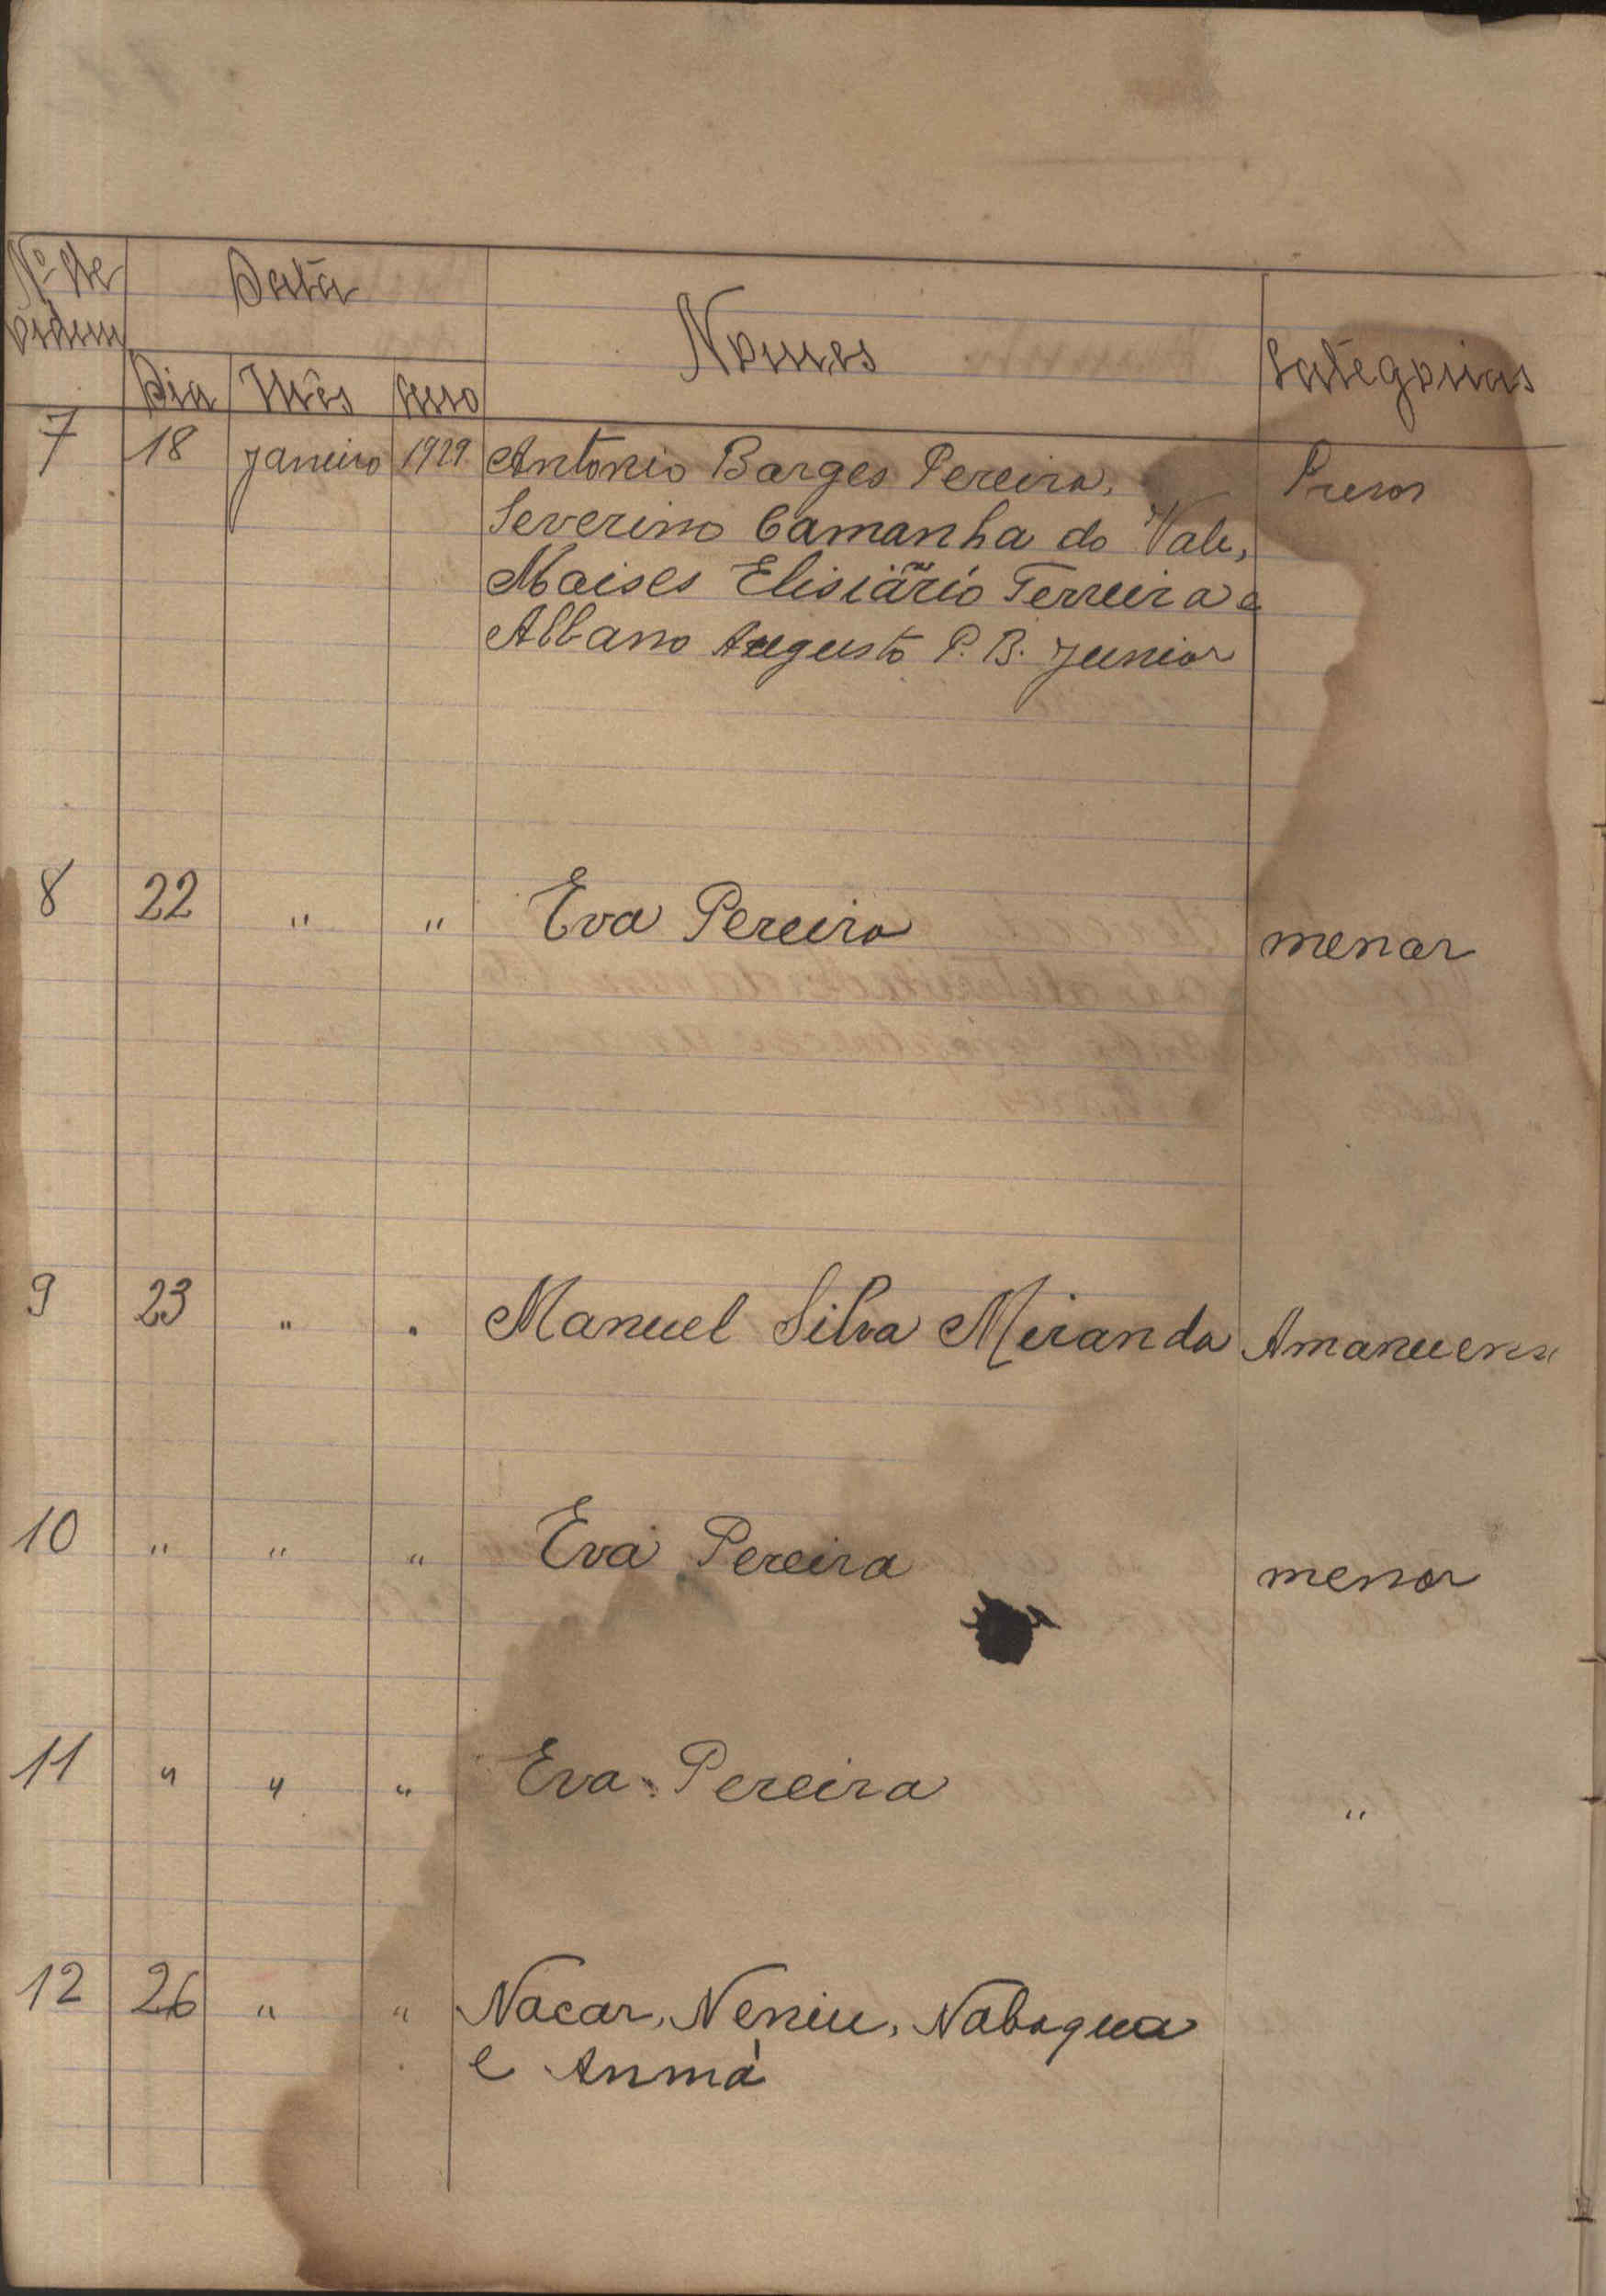 Nº de ordem
Data
Nomes
Categorias
Dia Mês Anno
7 18 Janeiro 1929 Antonio Barges Pereira, Presos
Severino Camanha do Vale,
Moises Elisiário Ferreira e
Albano Augusto P. B. Junior
8 22 " " Eva Pereira menor
9 23 " " Manuel Silva Miranda Amanuense
10 " " " Eva Pereira menor
11 " " " Eva Pereira "
12 26 " " Nacar, Neniu, Nabogua
e Anmá